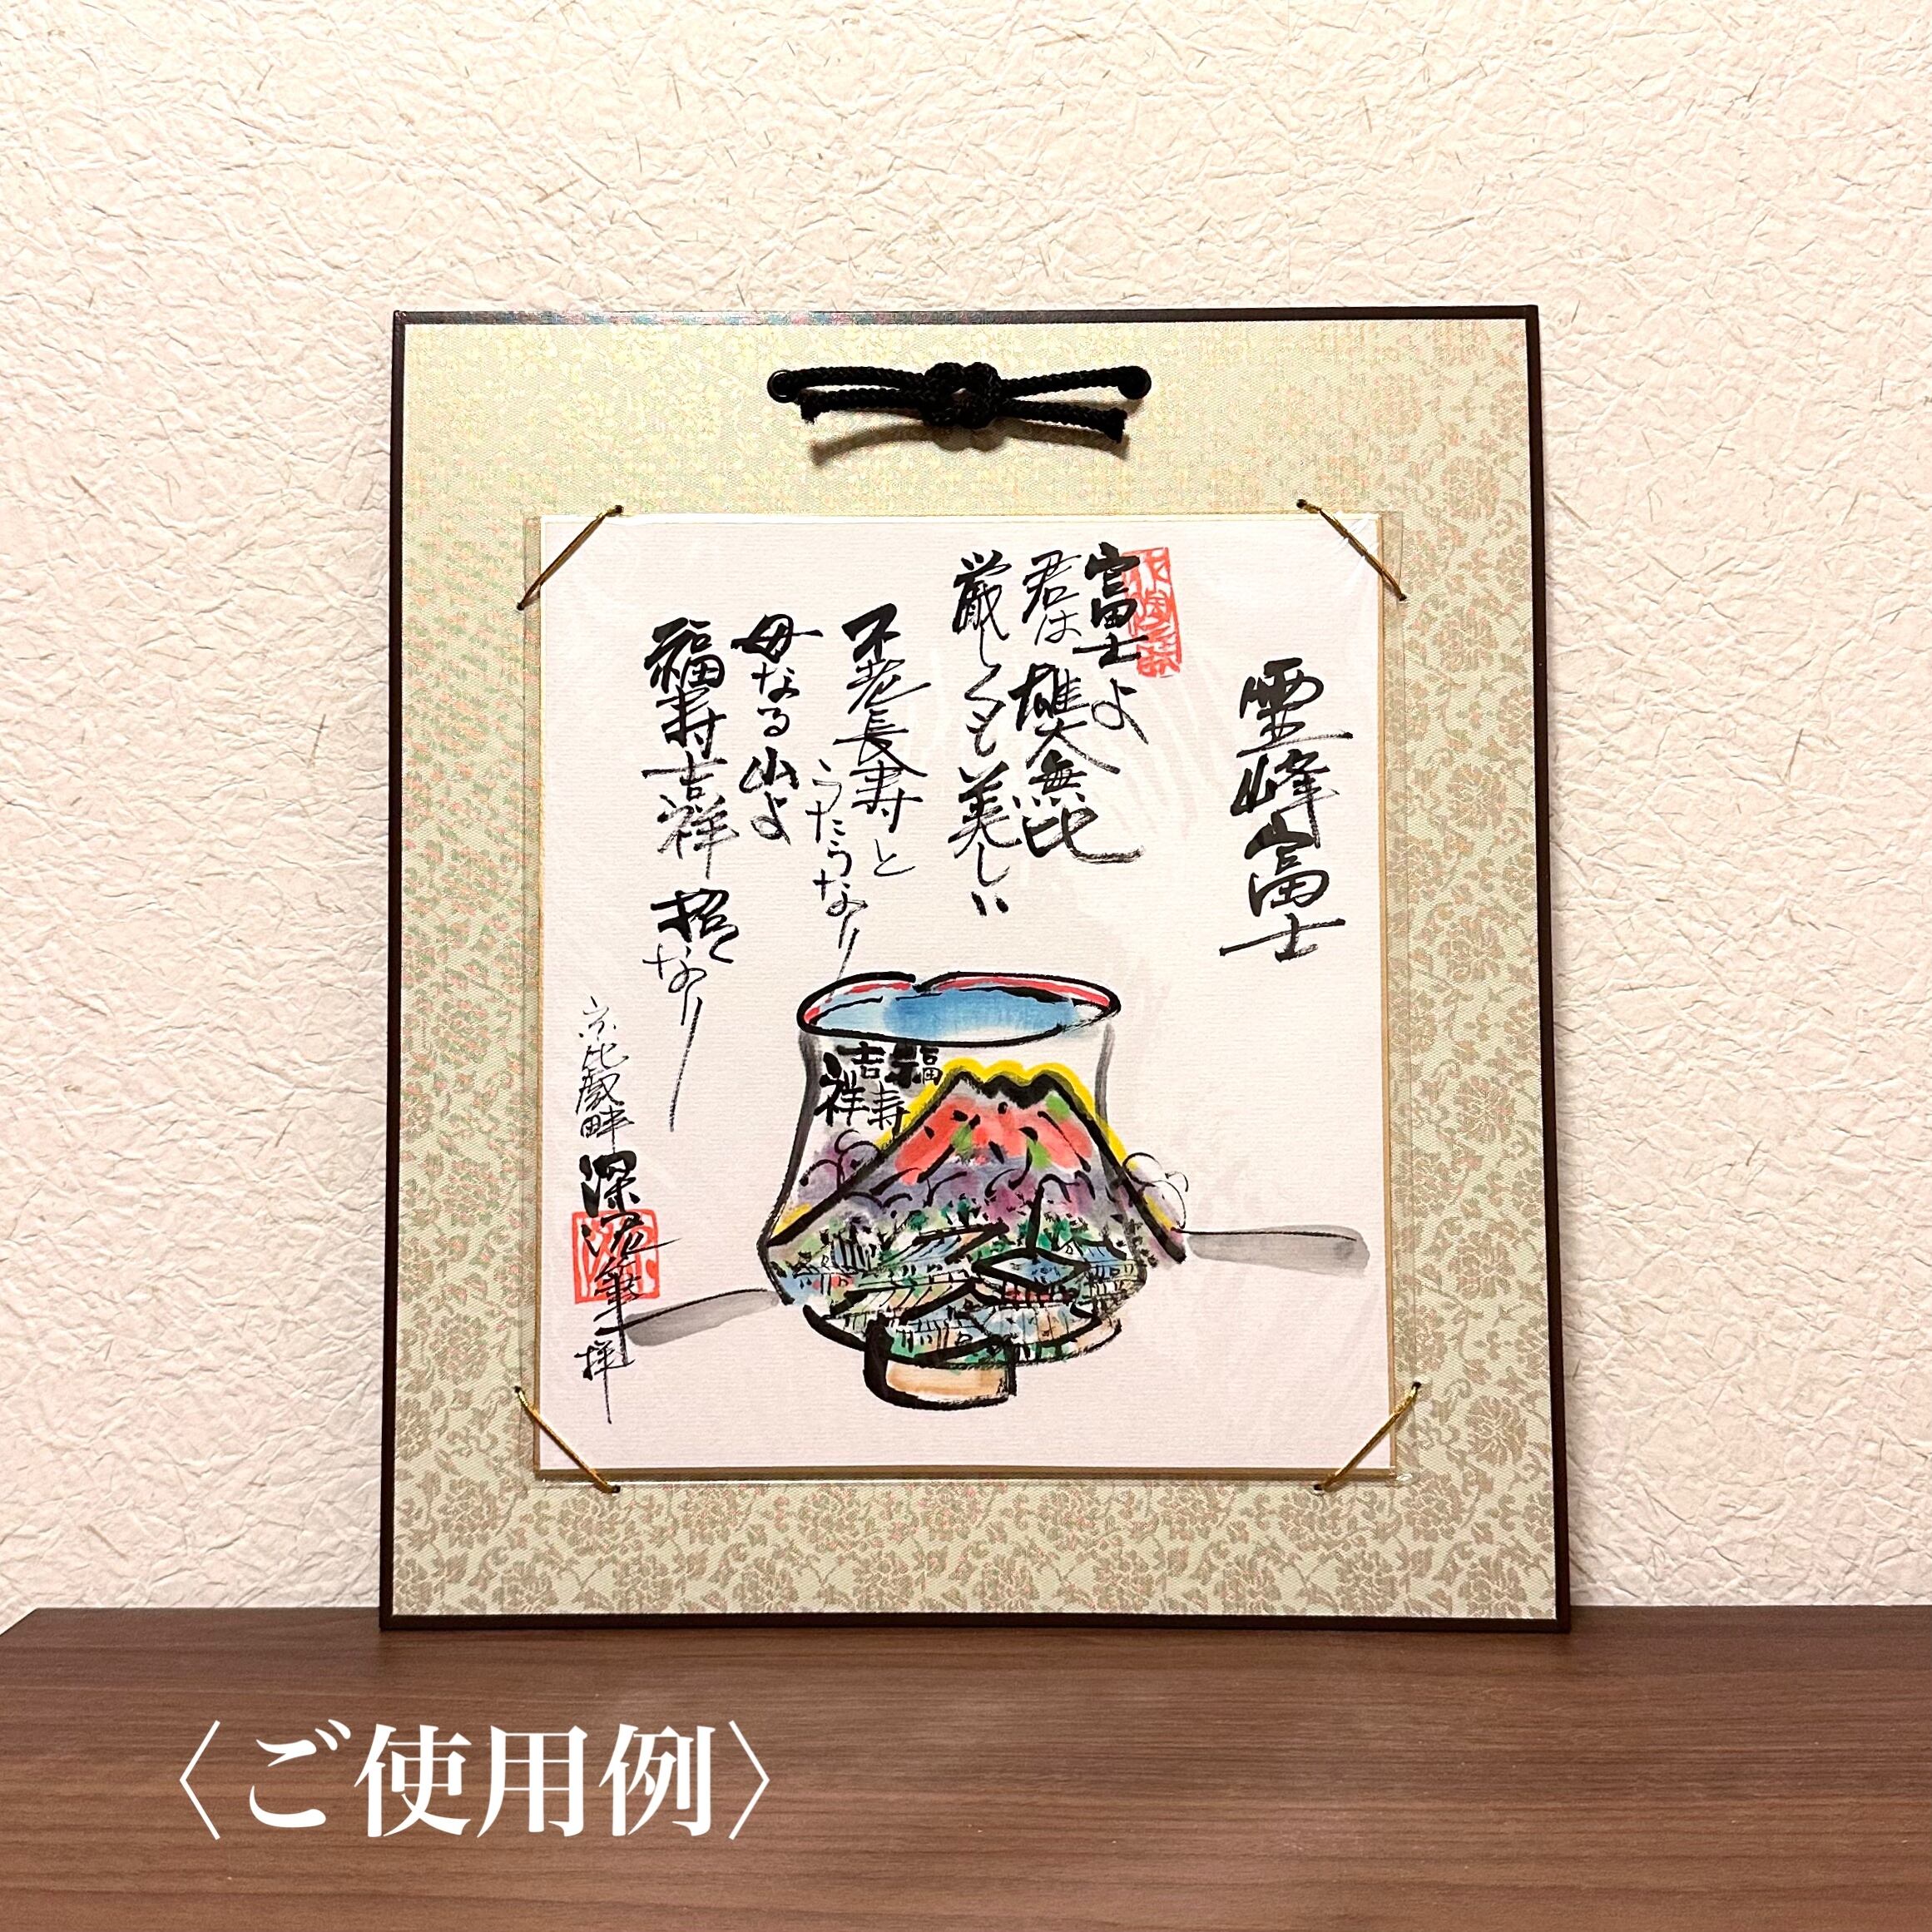 霊峰富士
富士よ
君は雄大無比
厳しくも美しい
不老長寿と
うたうなり
母なる山よ
福寿吉祥招くなり
京比叡畔
深泥筆
拝
福寿
吉祥
〈ご使用例〉